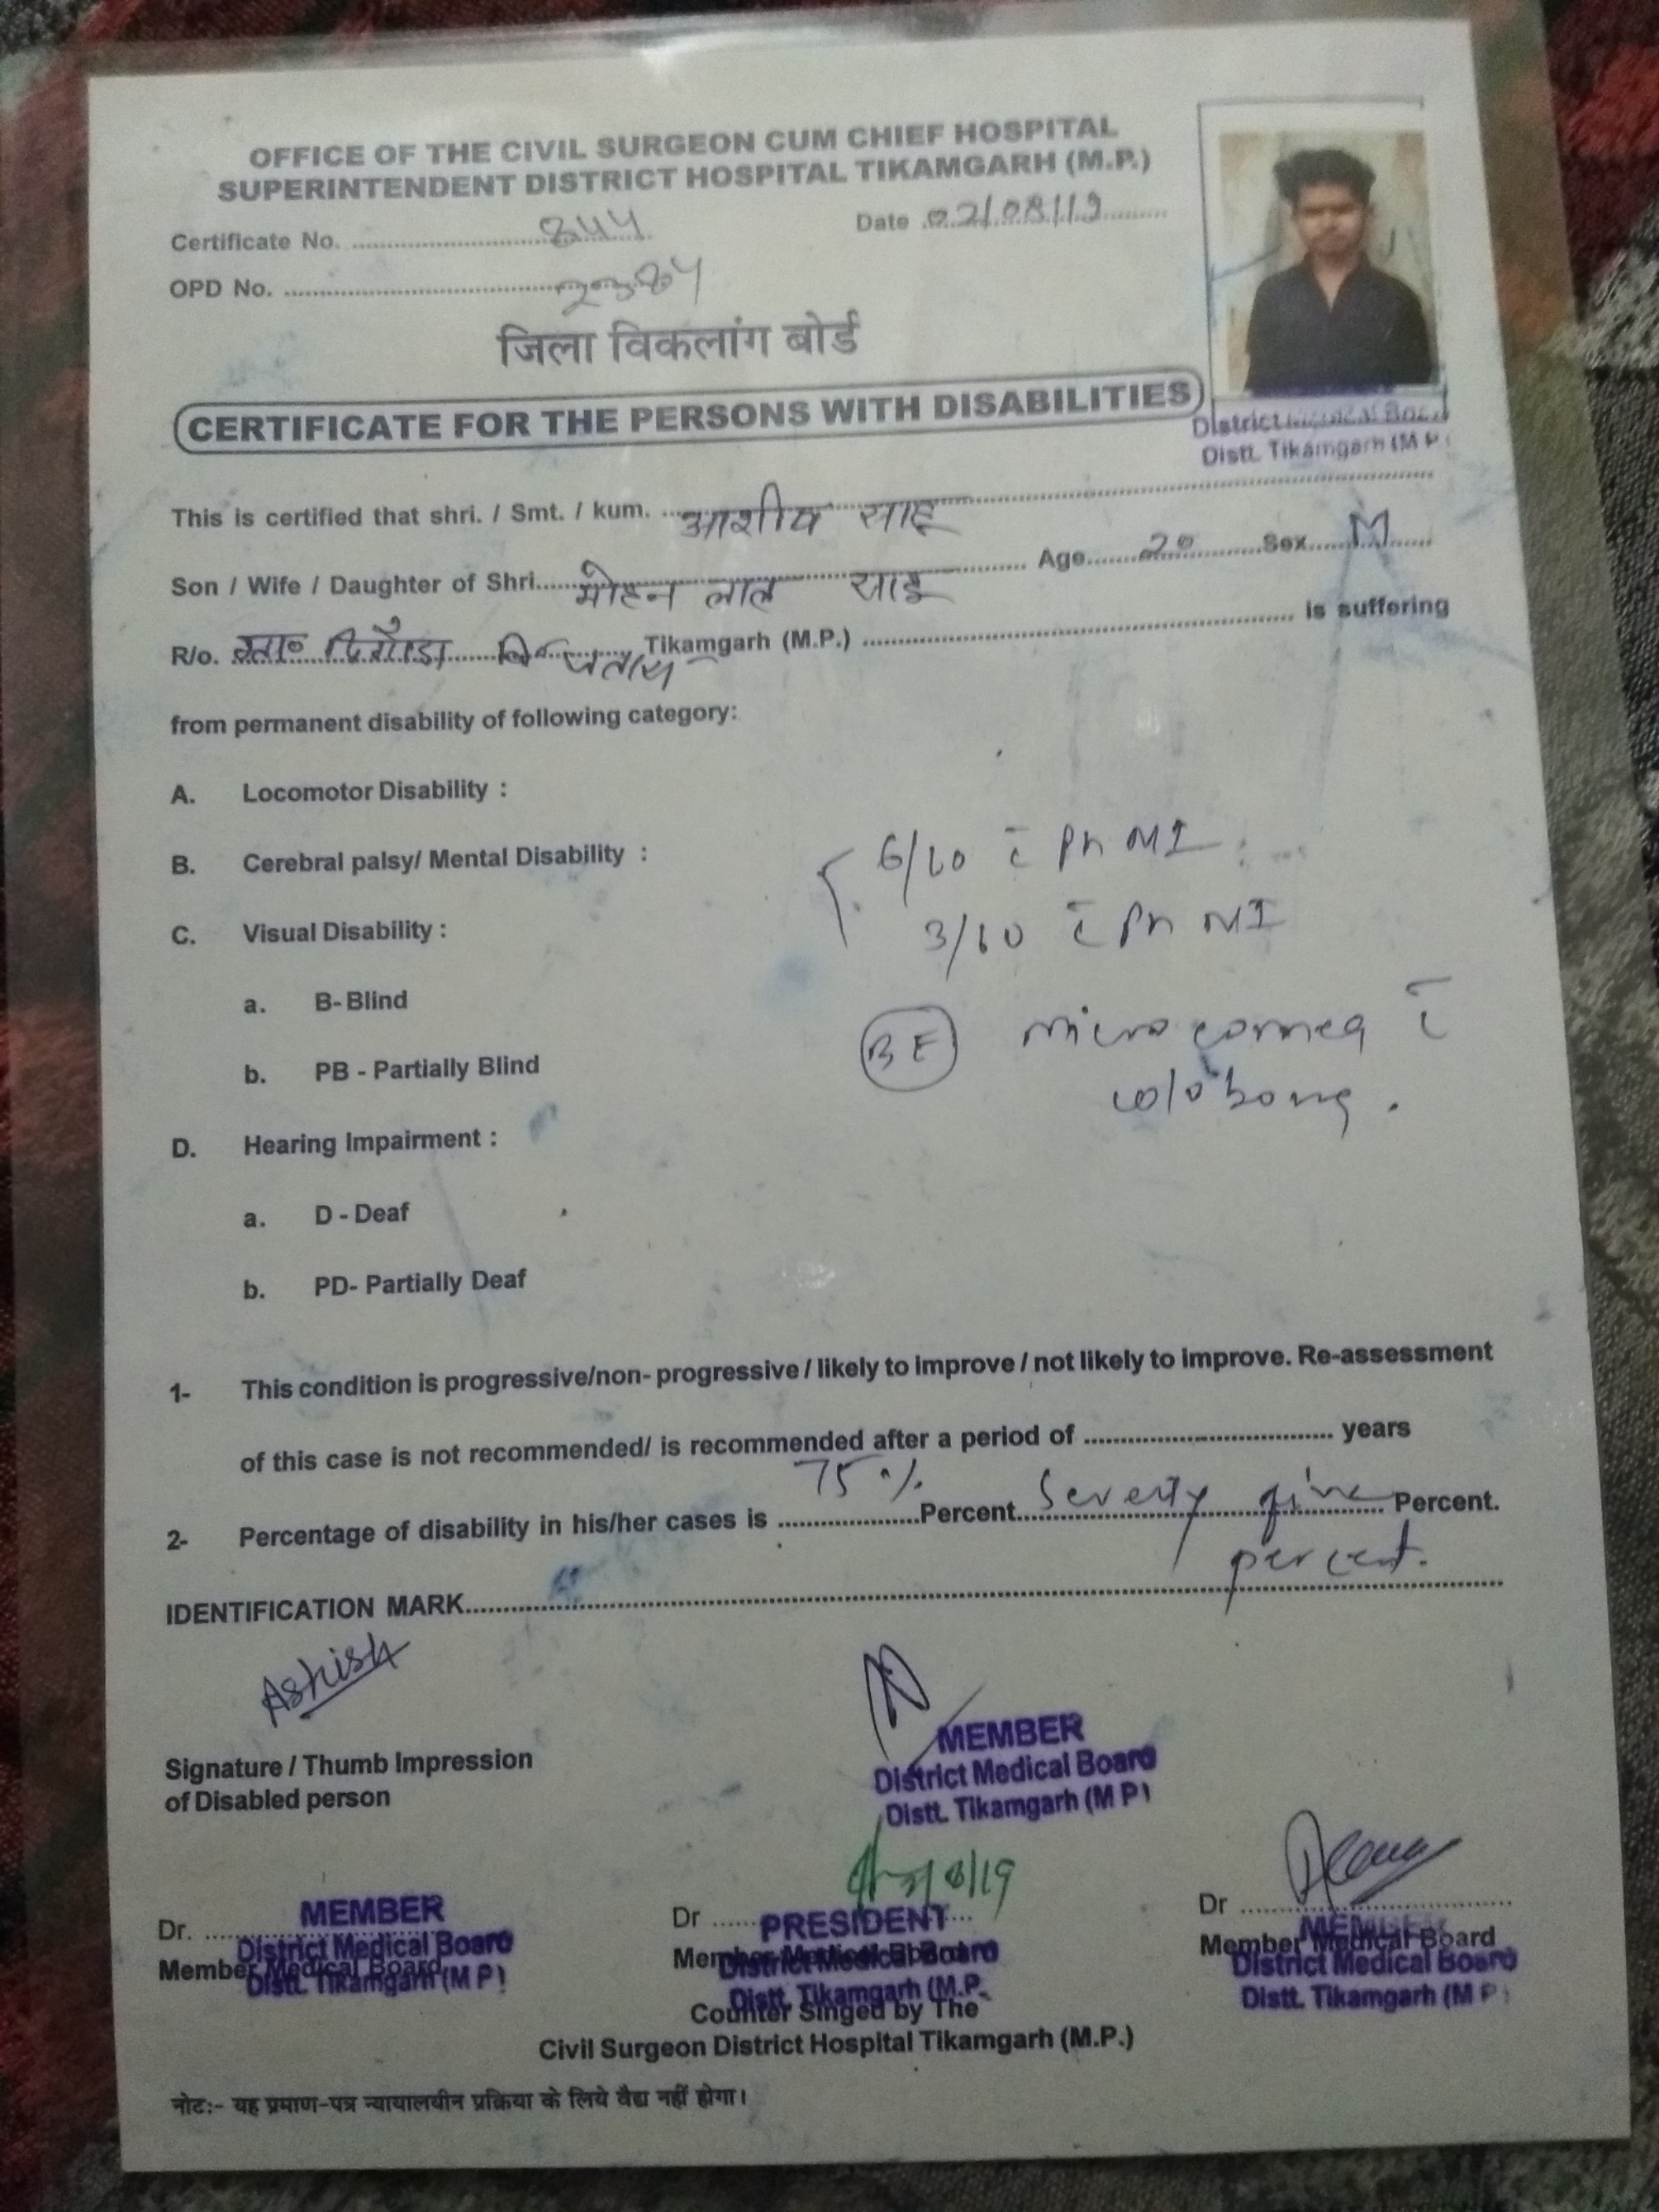 OFFICE OF THE CIVIL SURGEON CUM CHIEF HOSPITAL
SUPERINTENDENT DISTRICT HOSPITAL TIKAMGARH (M.P.)
Certificate No. 844 Date 02/08/19
OPD No. 2384
जिला विकलांग बोर्ड
CERTIFICATE FOR THE PERSONS WITH DISABILITIES
District Medical Board
Distt. Tikamgarh (M P)
This is certified that shri. / Smt. / kum. आशीष साहू
Son / Wife / Daughter of Shri. मोहन लाल साहू Age 20 Sex M
R/o. दिगौडा Tikamgarh (M.P.) is suffering
from permanent disability of following category:
A. Locomotor Disability :
B. Cerebral palsy/ Mental Disability : 6/60 c̄ Ph NI
C. Visual Disability : 3/60 c̄ Ph NI
a. B- Blind
BE microcornea c̄
b. PB - Partially Blind
coloboma.
D. Hearing Impairment :
a. D - Deaf
b. PD- Partially Deaf
1- This condition is progressive/non- progressive / likely to improve / not likely to improve. Re-assessment
of this case is not recommended/ is recommended after a period of years
2- Percentage of disability in his/her cases is 75% Percent Seventy five Percent.
percent.
IDENTIFICATION MARK
Ashish
MEMBER
Signature / Thumb Impression
District Medical Board
of Disabled person
Distt. Tikamgarh (M P)
Dr. MEMBER
District Medical Board
Member Medical Board
Distt. Tikamgarh (M P)
Dr PRESIDENT
Member Medical Board
District Medical Board
Distt. Tikamgarh (M.P.
Dr
MEMBER
Member Medical Board
District Medical Board
Distt. Tikamgarh (M P)
Counter Singed by The
Civil Surgeon District Hospital Tikamgarh (M.P.)
नोटः- यह प्रमाण-पत्र न्यायालयीन प्रक्रिया के लिये वैद्य नहीं होगा।